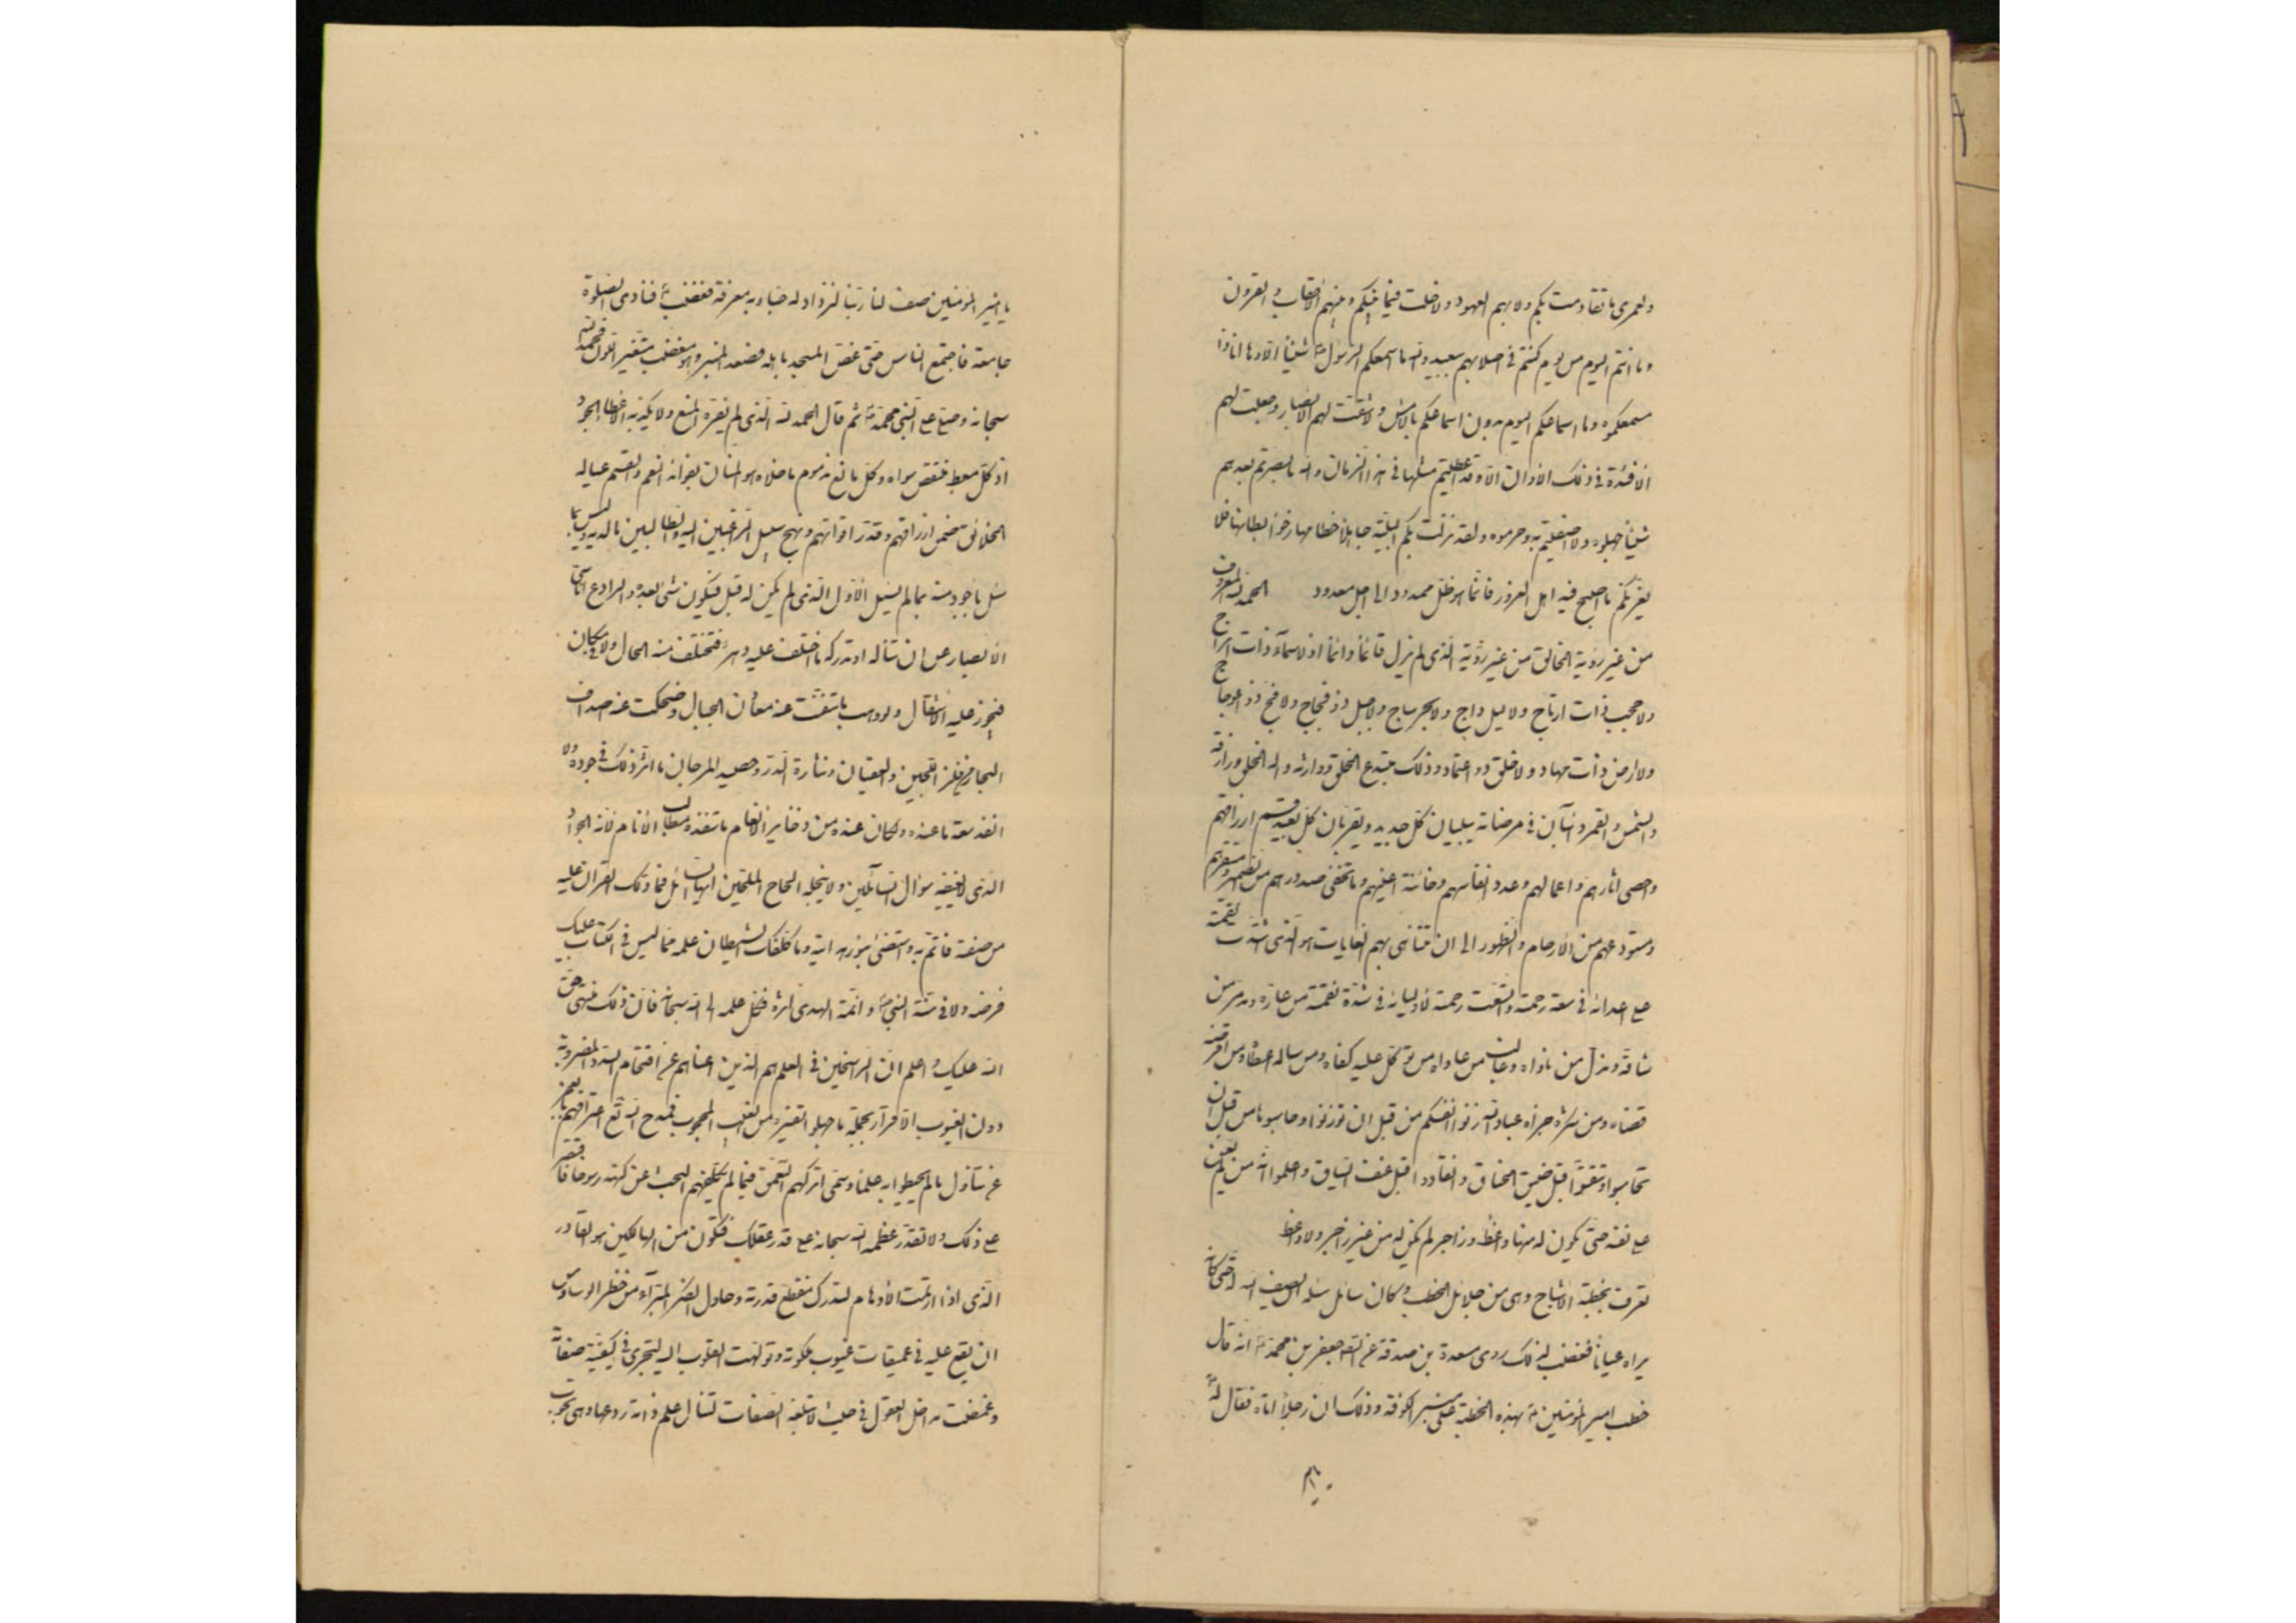 ولعمری ما تقادمت بکم ولا بهم العهود ولا خلت فیما بینکم وبینهم الاحقاب والقرون
وما انتم الیوم من یوم کنتم فی اصلابهم ببعید والله ما اسمعکم الرسول شیئا الا وها انا ذا
مسمعکموه وما اسماعکم الیوم بدون اسماعکم بالامس ولا شقت لهم الابصار وجعلت لهم
الافئدة فی ذلک الاوان الا وقد اعطیتم مثلها فی هذا الزمان والله ما بصرتم بعدهم
شیئا جهلوه ولا اصفیتم به وحرموه ولقد نزلت بکم البلیة جایلا خطامها رخوا بطانها فلا
یغرنکم ما اصبح فیه اهل الغرور فانما هو ظل ممدود الی اجل معدود الحمد لله المعروف
من غیر رؤیة الخالق من غیر رویة الذی لم یزل قائما دائما اذ لا سماء ذات ابراج
ولا حجب ذات ارتاج ولا لیل داج ولا بحر ساج ولا جبل ذو فجاج ولا فج ذو اعوجاج
ولا ارض ذات مهاد ولا خلق ذو اعتماد وذلک مبتدع الخلق ووارثه واله الخلق ورازقه
والشمس والقمر دائبان فی مرضاته یبلیان کل جدید ویقربان کل بعید قسم ارزاقهم
واحصی اثارهم واعمالهم وعدد انفاسهم وخائنة اعینهم وما تخفی صدورهم من الضمیر ومستقرهم
ومستودعهم من الارحام والظهور الی ان تتناهی بهم الغایات هو الذی اشتدت نقمته
علی اعدائه فی سعة رحمته واتسعت رحمته لاولیائه فی شدة نقمته من عازه ومدمر من
شاقه ومذل من ناواه وغالب من عاداه من توکل علیه کفاه ومن ساله اعطاه ومن اقرضه
قضاه ومن شکره جزاه عباد الله زنوا انفسکم من قبل ان توزنوا وحاسبوها من قبل ان
تحاسبوا وتنفسوا قبل ضیق الخناق وانقادوا قبل عنف السیاق واعلموا انه من لم یعن
علی نفسه حتی یکون له منها واعظ وزاجر لم یکن له من غیرها زاجر ولا واعظ
تعرف بخطبة الاشباح وهی من جلائل الخطب وکان سائل سئله ان یصف الله حتی کانه
یراه عیانا فغضب لذلک روی مسعدة بن صدقة عن الصادق جعفر بن محمد انه قال
خطب امیر المؤمنین بهذه الخطبة علی منبر الکوفة وذلک ان رجلا اتاه فقال له
یا امیر
یا امیر المؤمنین صف لنا ربنا لنزداد له حبا وبه معرفة فغضب فنادی الصلوة
جامعة فاجتمع الناس حتی غص المسجد باهله فصعد المنبر وهو مغضب متغیر اللون فحمد الله
سبحانه وصلی علی النبی محمد ثم قال الحمد لله الذی لا یفره المنع ولا یکدیه الاعطاء والجود
اذ کل معط منتقص سواه وکل مانع مذموم ما خلاه هو المنان بفوائد النعم والقسم عیاله
الخلائق ضمن ارزاقهم وقدر اقواتهم ونهج سبیل الراغبین الیه والطالبین ما لدیه ولیس بما
سئل باجود منه بما لم یسئل الاول الذی لم یکن له قبل فیکون شیء بعده والرادع اناسی
الابصار عن ان تناله او تدرکه ما اختلف علیه دهر فتختلف منه الحال ولا کان فی مکان
فیجوز علیه الانتقال ولو وهب ما تنفست عنه معادن الجبال وضحکت عنه اصداف
البحار من فلز اللجین والعقیان ونثارة الدر وحصید المرجان ما اثر ذلک فی جوده ولا
انفد سعة ما عنده ولکان عنده من ذخایر الانعام ما تنفده مطالب الانام لانه الجواد
الذی لا یغیضه سؤال السائلین ولا یبخله الحاح الملحین ایها السائل فما دلک القران علیه
من صفته فائتم به واستضئ بنور هدایته وما کلفک الشیطان علمه مما لیس فی الکتاب علیک
فرضه ولا فی سنة النبی وائمة الهدی اثره فکل علمه الی الله سبحانه فان ذلک منتهی حق
الله علیک واعلم ان الراسخین فی العلم هم الذین اغناهم عن اقتحام السدد المضروبة
دون الغیوب الاقرار بجملة ما جهلوا تفسیره من الغیب المحجوب فمدح الله تع اعترافهم بالعجز
عن تناول ما لم یحیطوا به علما وسمی ترکهم التعمق فیما لم یکلفهم البحث عن کنهه رسوخا فاقتصر
علی ذلک ولا تقدر عظمة الله سبحانه علی قدر عقلک فتکون من الهالکین هو القادر
الذی اذا ارتمت الاوهام لتدرک منقطع قدرته وحاول الفکر المبرأ من خطر الوساوس
ان یقع علیه فی عمیقات غیوب ملکوته وتولهت القلوب الیه لتجری فی کیفیة صفاته
وغمضت مداخل العقول فی حیث لا تبلغه الصفات لتنال علم ذاته ردعها وهی تجوب